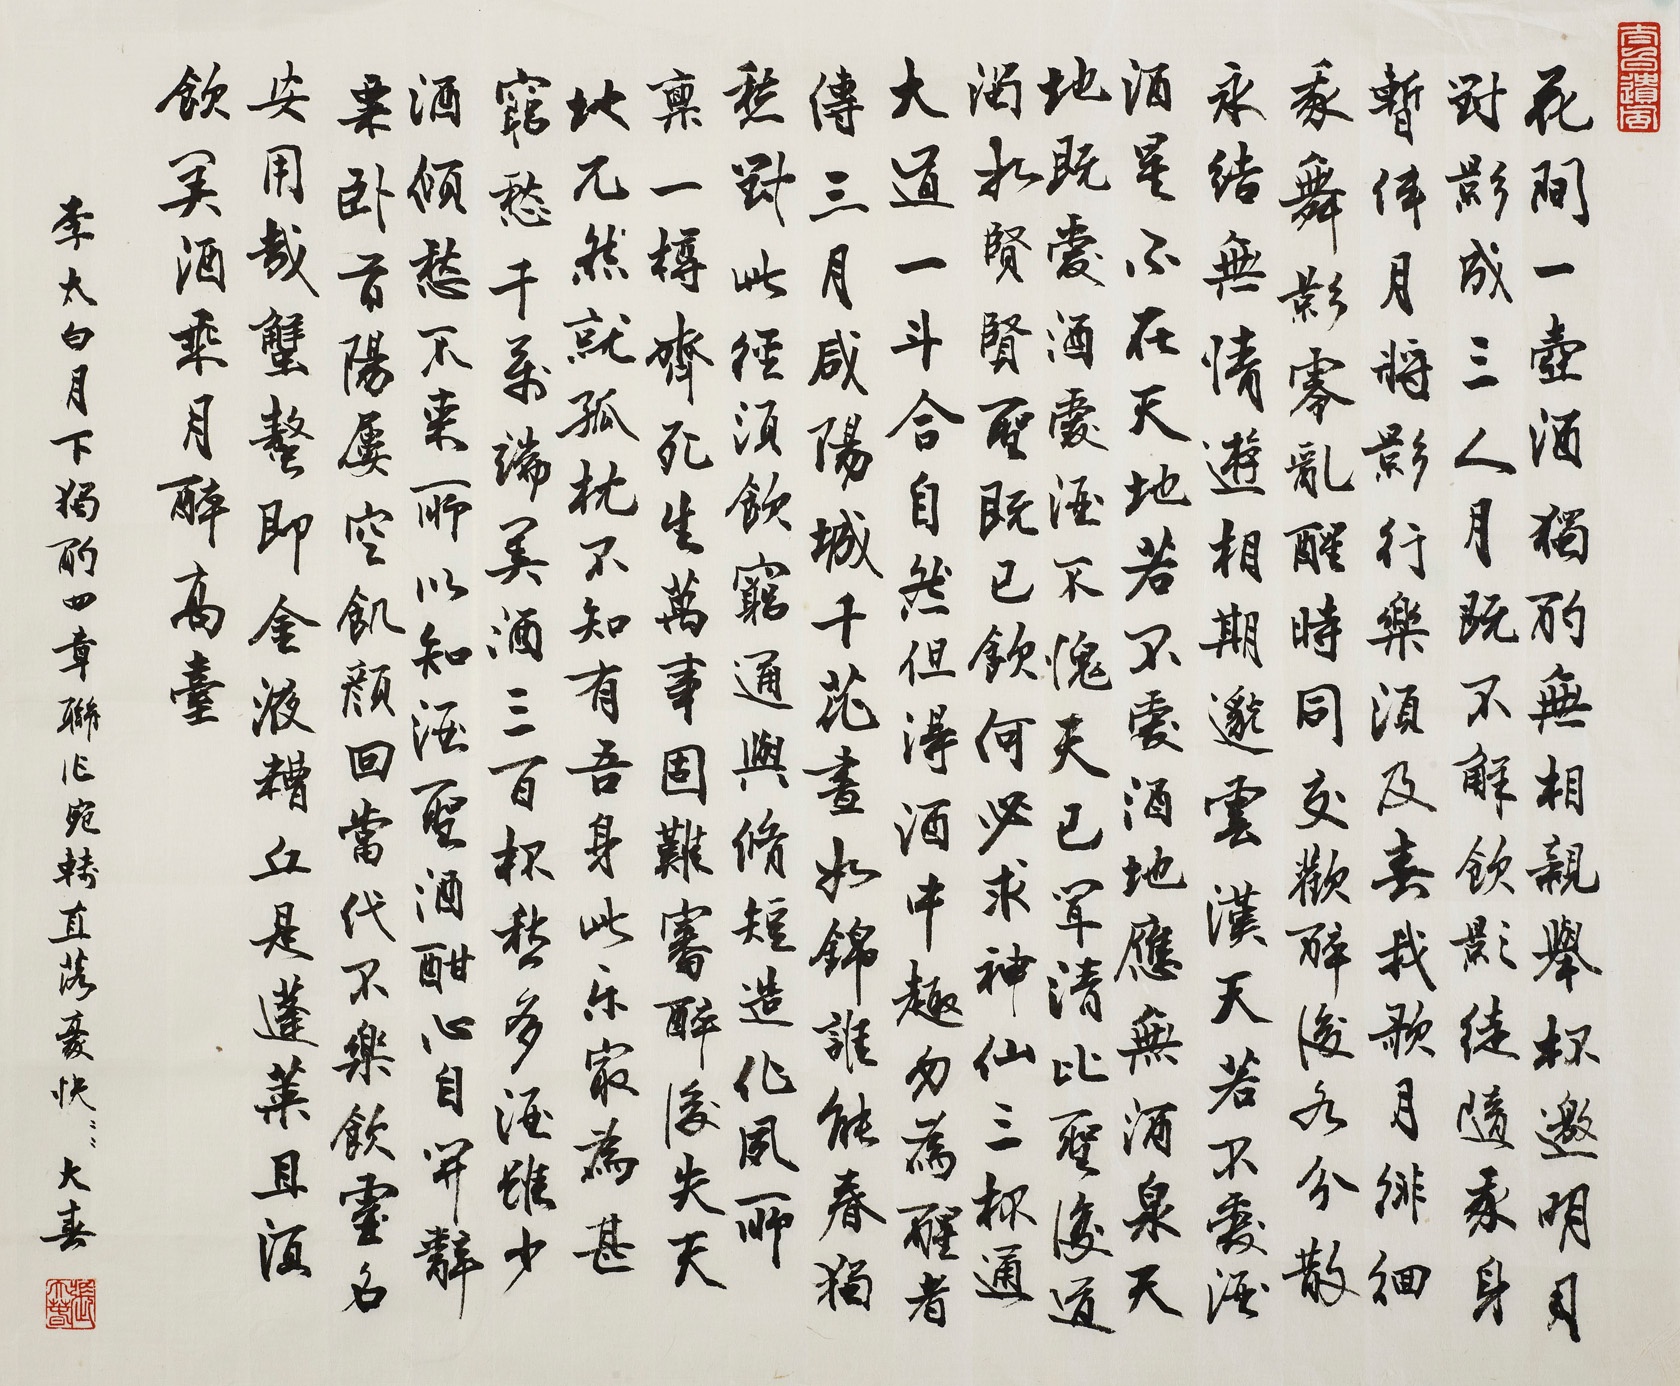 花間一壺酒獨酌無相親舉杯邀明月
對影成三人月既不解飲影徒隨我身
暫伴月將影行樂須及春我歌月徘徊
我舞影零亂醒時同交歡醉後各分散
永結無情遊相期邈雲漢天若不愛酒
酒星不在天地若不愛酒地應無酒泉天
地既愛酒愛酒不愧天已聞清比聖復道
濁如賢賢聖既已飲何必求神仙三杯通
大道一斗合自然但得酒中趣勿為醒者
傳三月咸陽城千花晝如錦誰能春獨
愁對此徑須飲窮通與脩短造化夙所
稟一樽齊死生萬事固難審醉後失天
地兀然就孤枕不知有吾身此樂最為甚
窮愁千萬端美酒三百杯愁多酒雖少
酒傾愁不來所以知酒聖酒酣心自開辭
粟臥首陽屢空飢顏回當代不樂飲虛名
安用哉蟹螯即金液糟丘是蓬萊且須
飲美酒乘月醉高臺
李太白月下獨酌四章聯作宛轉直落豪快〻〻大春